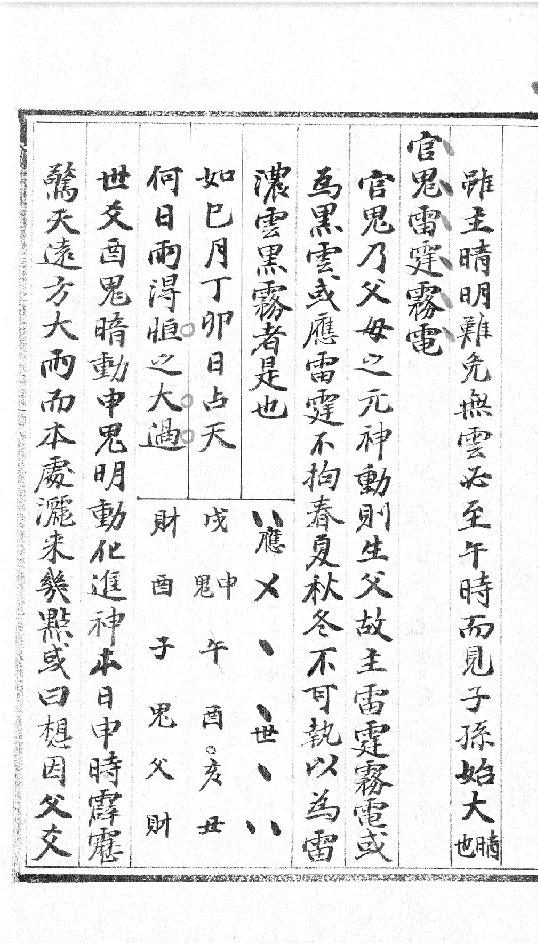 雖主晴明難免無雲必至午時而見子孫始大晴也
官鬼雷霆霧電
官鬼乃父母之元神動則生父故主雷霆霧電或
為黑雲或應雷霆不拘春夏秋冬不可執以為雷
濃雲黑霧者是也
如巳月丁卯日占天
何日雨得恒之大過
應
世
戌 申鬼 午 酉 亥 丑
財 酉 子 鬼 父 財
世爻酉鬼暗動申鬼明動化進神本日申時霹靂
驚天遠方大雨而本處灑來幾點或曰想因父爻